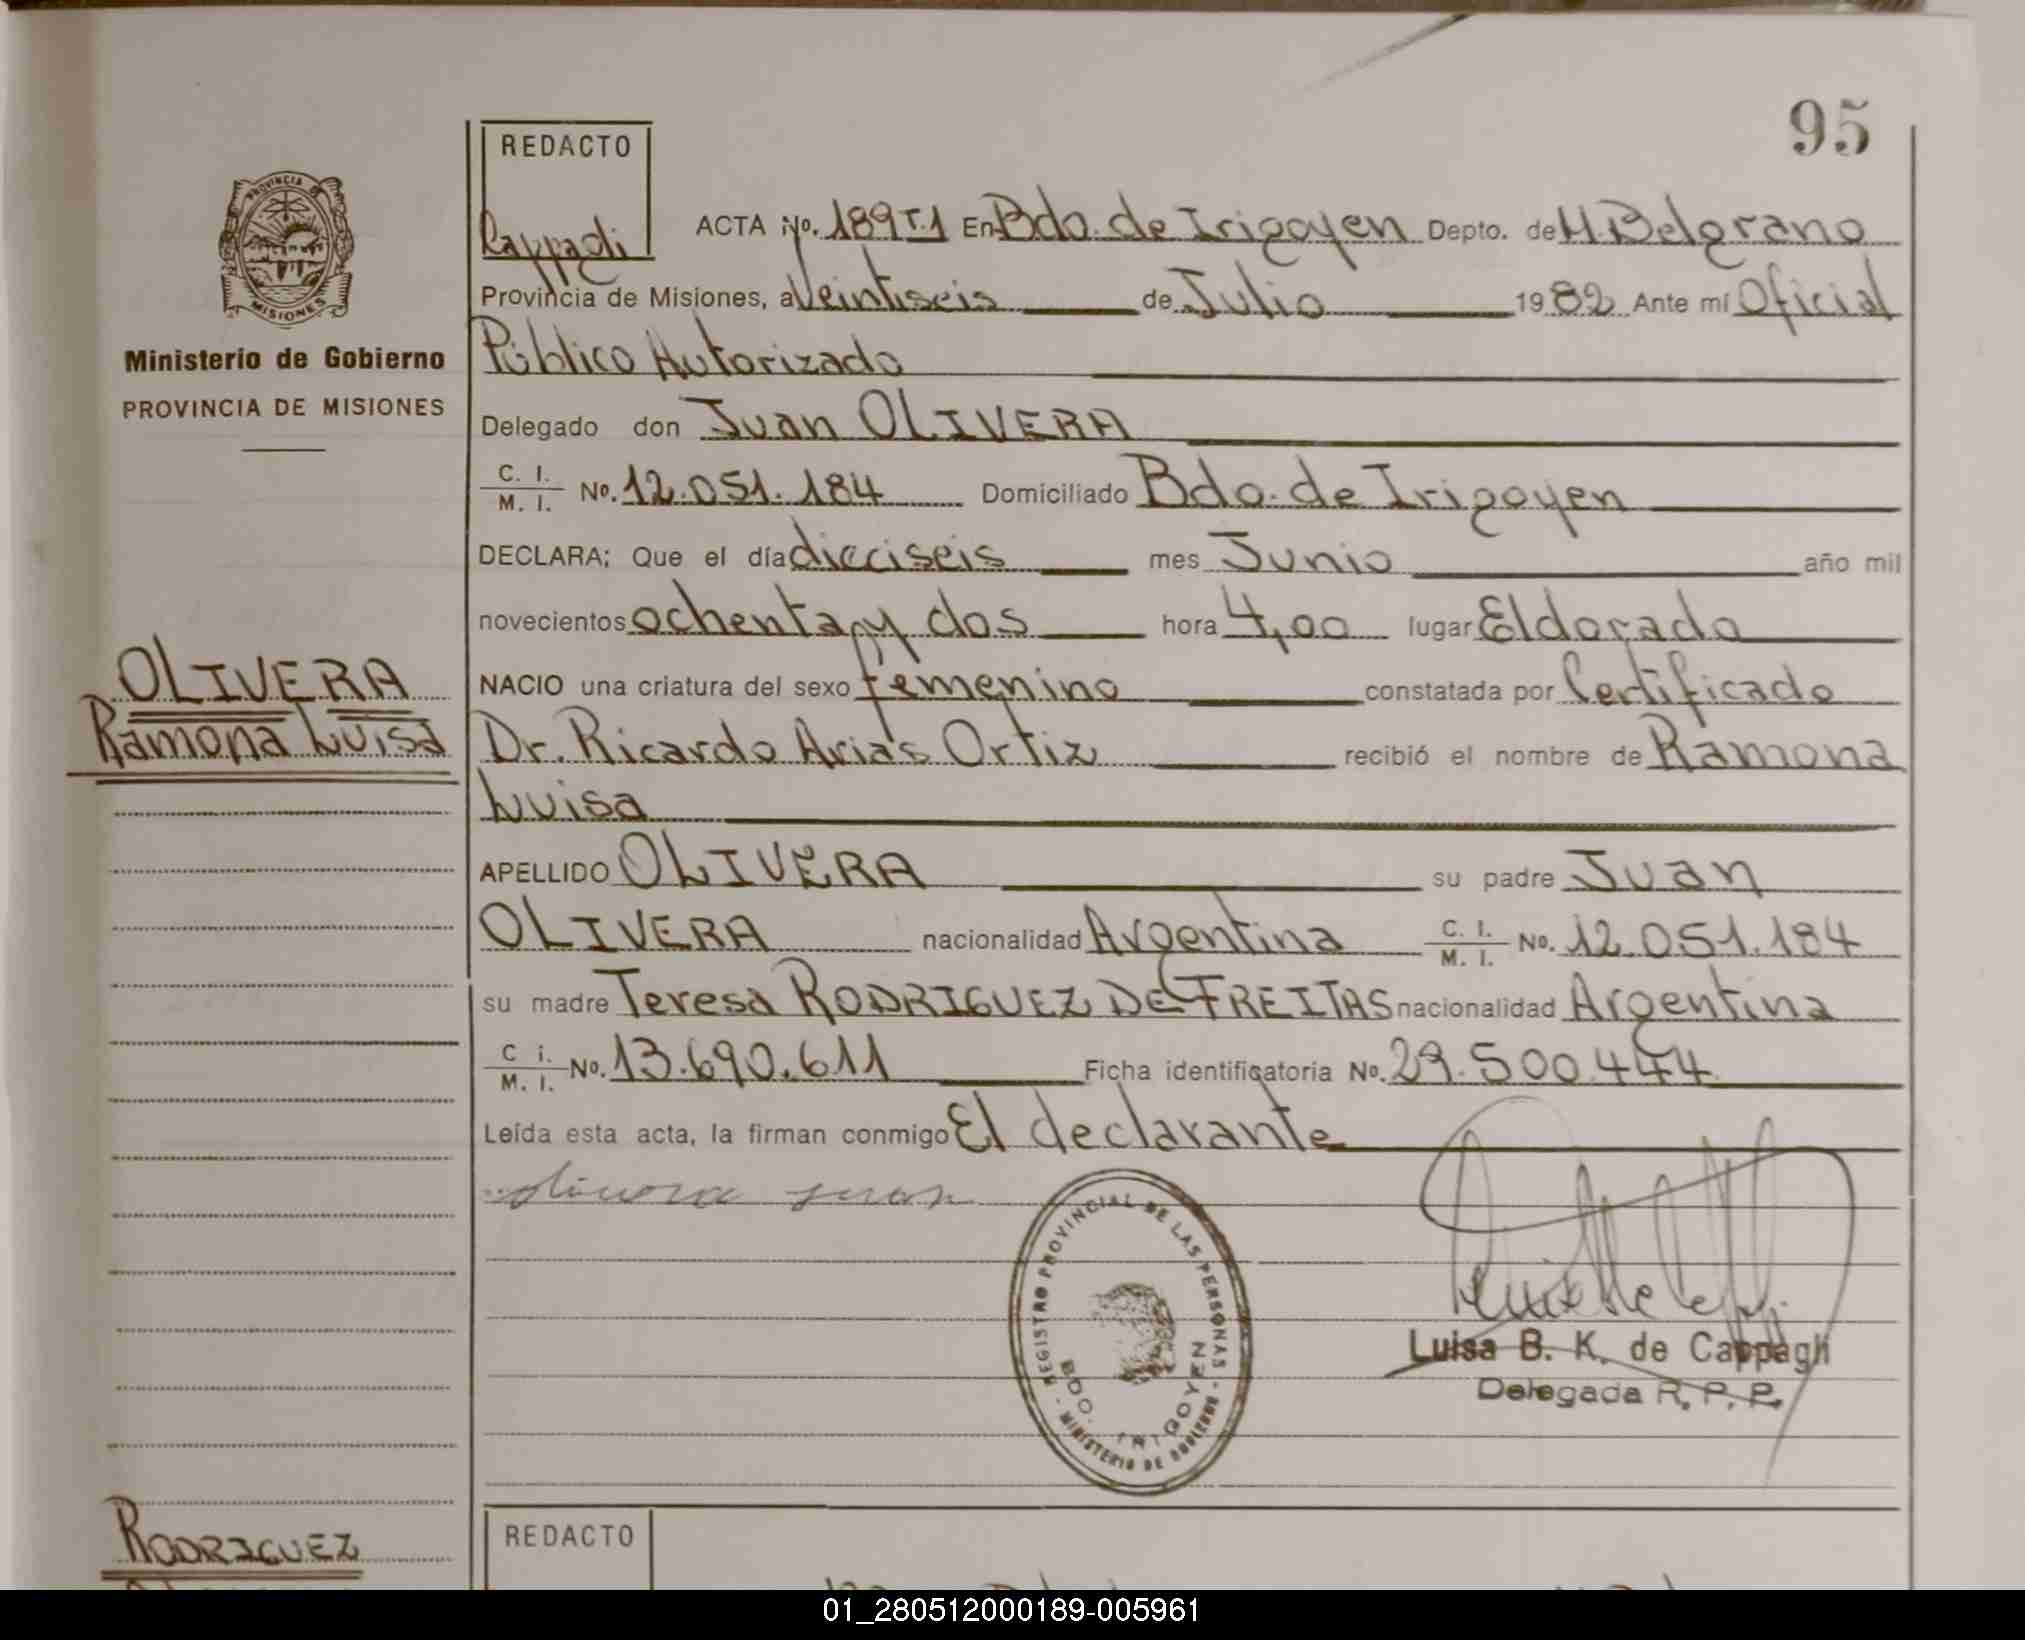 95
REDACTO
Cappagli
PROVINCIA DE MISIONES
Ministerio de Gobierno
PROVINCIA DE MISIONES
ACTA No. 189 T.1 En Bdo. de Irigoyen Depto. de M. Belgrano
Provincia de Misiones, a Veintiseis de Julio 1982 Ante mí Oficial
Público Autorizado
Delegado don Juan OLIVERA
C. I. / M. I. No. 12.051.184 Domiciliado Bdo. de Irigoyen
DECLARA; Que el día dieciseis mes Junio año mil
novecientos ochenta y dos hora 4,00 lugar Eldorado
NACIO una criatura del sexo femenino constatada por Certificado
Dr. Ricardo Arias Ortiz recibió el nombre de Ramona
Luisa
APELLIDO OLIVERA su padre Juan
OLIVERA nacionalidad Argentina C. I. / M. I. No. 12.051.184
su madre Teresa RODRIGUEZ DE FREITAS nacionalidad Argentina
C i. / M. I. No. 13.690.611 Ficha identificatoria No. 29.500.444
Leída esta acta, la firman conmigo El declarante
Olivera Juan
OLIVERA
Ramona Luisa
REGISTRO PROVINCIAL DE LAS PERSONAS - MINISTERIO DE GOBIERNO -
BDO. IRIGOYEN
Luisa B. K. de Cappagli
Delegada R. P. P.
RODRIGUEZ
REDACTO
01_280512000189-005961